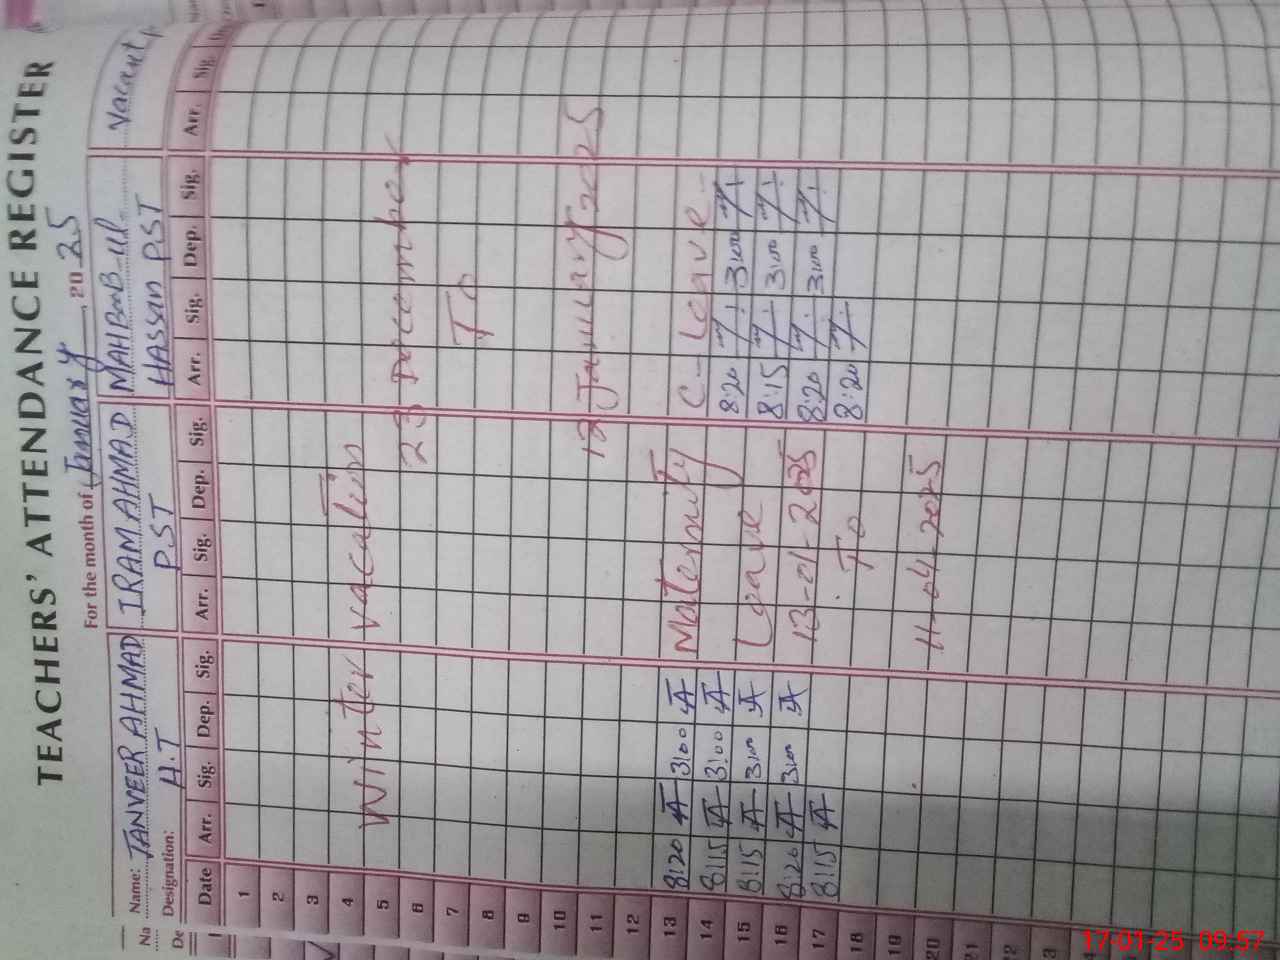 TEACHERS' ATTENDANCE REGISTER
For the month of January, 2025
Name: TANVEER AHMAD IRAM AHMAD MAHBOOB-ul- Vacant
Designation: H.T PST HASSAN PST
Date Arr. Sig. Dep. Sig. Arr. Sig. Dep. Sig. Arr. Sig. Dep. Sig. Arr. Sig.
1
2
3
4 Winter vacation
5
6 23 December
7 To
8
9
10
11 12 January 2025
12
13 8:20 3:00 Maternity C-Leave
14 8:15 3:00 8:20 3:00
15 8:15 3:00 Leave 8:15 3:00
16 8:20 3:00 13-01-2025 8:20 3:00
17 8:15 To 8:20
18
19
20 11-04-2025
21
17-01-25 09:57